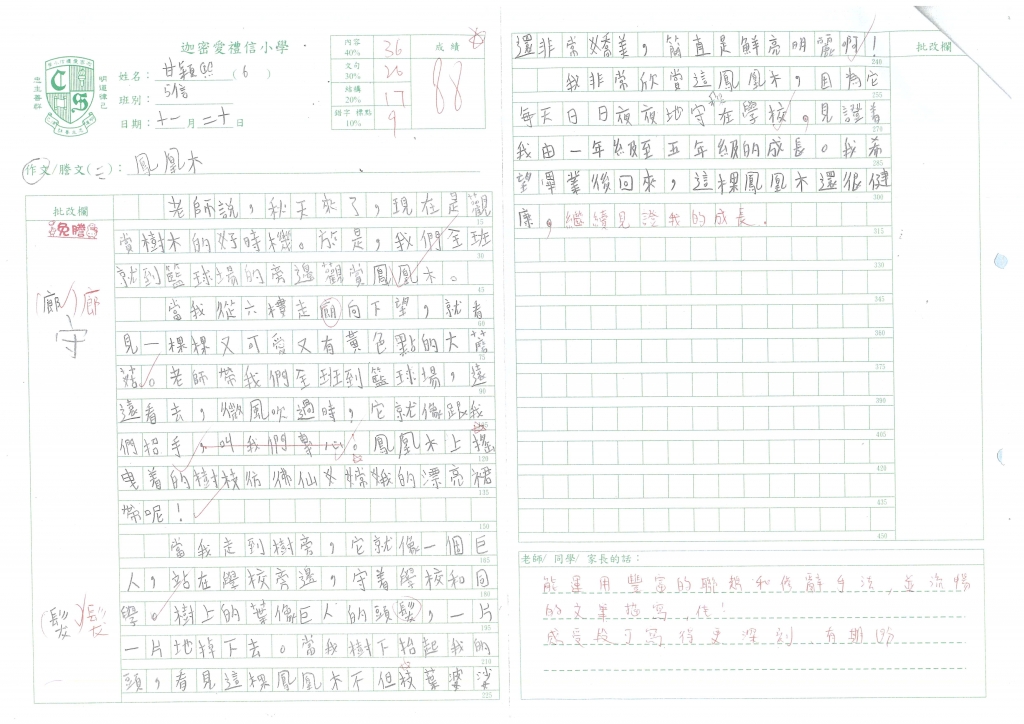 迦密愛禮信小學
忠主善群
明道律己
姓名：甘穎熙（6）
班別：5信
日期：十一月二十日
內容 40% 36
文句 30% 26
結構 20% 17
錯字 標點 10% 9
成績
88
作文/謄文(二)：鳳凰木
批改欄
免謄
(廊)廊
守
(髮)髮
老師說，秋天來了，現在是觀
賞樹木的好時機。於是，我們全班
就到籃球場的旁邊觀賞鳳凰木。
當我從六樓走廊向下望，就看
見一棵棵又可愛又有黃色點的大蘑
菇。老師帶我們全班到籃球場，遠
遠看去，微風吹過時，它就像跟我
們招手，叫我們專心。鳳凰木上搖
曳着的樹枝仿佛仙女嫦娥的漂亮裙
帶呢！
當我走到樹旁，它就像一個巨
人，站在學校旁邊，守着學校和同
學。樹上的葉像巨人的頭髮，一片
一片地掉下去。當我樹下抬起我的
頭，看見這棵鳳凰木不但枝葉婆娑
15
30
45
60
75
90
120
135
150
165
180
195
210
225
批改欄
還非常嬌美，簡直是鮮亮明麗啊！
我非常欣賞這鳳凰木，因為它
每天日日夜夜地守在學校，見證着
我由一年級至五年級的成長。我希
望畢業後回來，這棵鳳凰木還很健
康，繼續見證我的成長。
240
255
270
285
300
315
330
345
360
375
390
405
420
435
450
老師/ 同學/ 家長的話：
能運用豐富的聯想和修辭手法，並流暢
的文筆描寫，佳！
感受段可寫得更深刻。有期盼